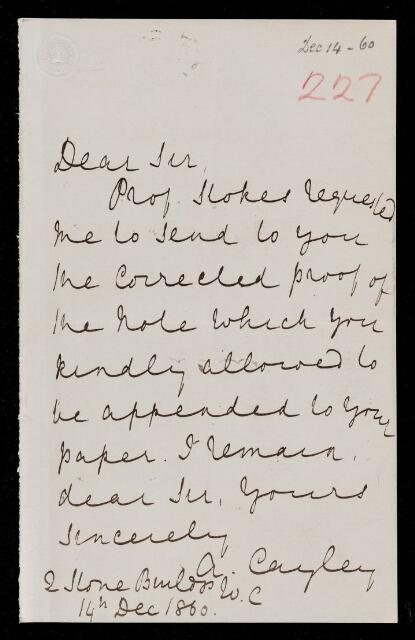 Dec 14 - 60
227
Dear Sir,
Prof. Stokes requested
me to send to you
the corrected proof of
the Note which you
kindly allowed to
be appended to your
paper. I remain,
dear Sir, Yours
sincerely
A. Cayley
2 Stone Buildgs W.C
14th Dec 1860.